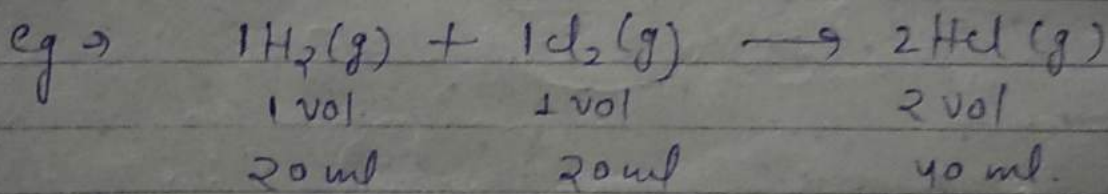 eg → 1H₂(g) + 1Cl₂(g) → 2HCl(g)
1 vol. 1 vol 2 vol
20 ml 20 ml 40 ml.